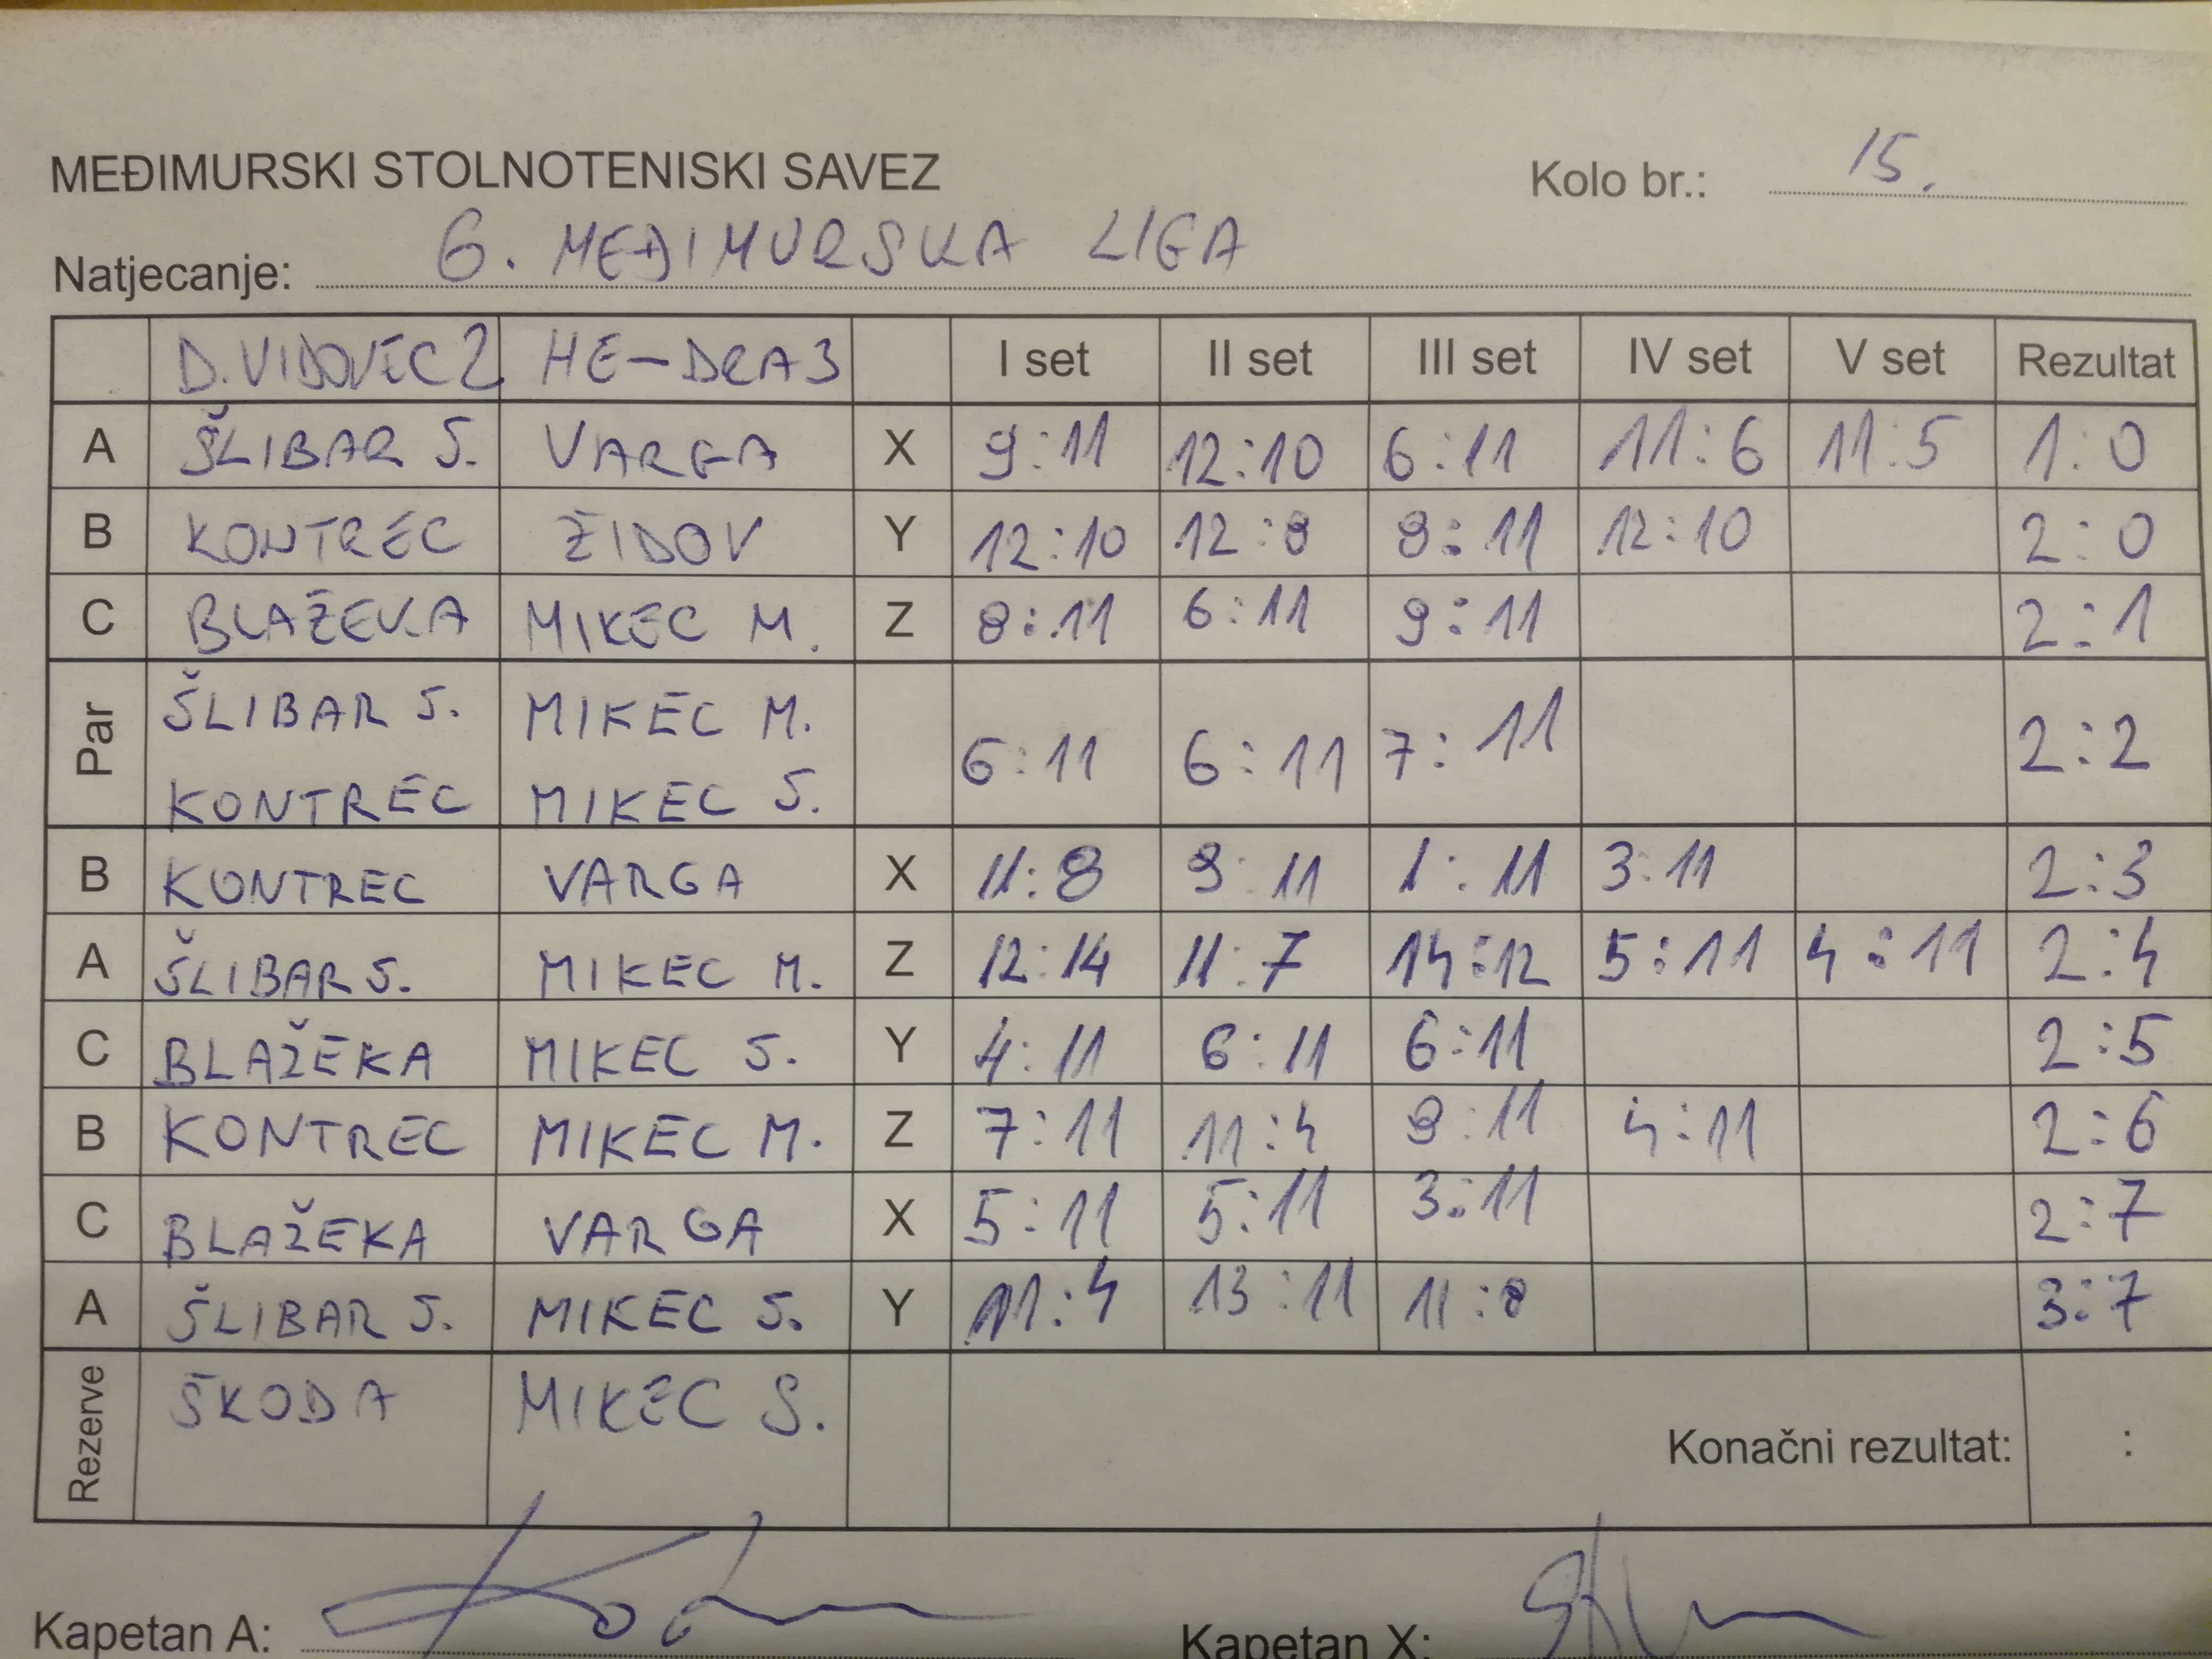 MEĐIMURSKI STOLNOTENISKI SAVEZ Kolo br.: 15.
Natjecanje: 6. MEĐIMURSKA LIGA
D. VIDOVEC 2 HE-DRA 3 I set II set III set IV set V set Rezultat
A ŠLIBAR S. VARGA X 9:11 12:10 6:11 11:6 11:5 1:0
B KONTREC ŽIDOV Y 12:10 12:8 9:11 12:10 2:0
C BLAŽEKA MIKEC M. Z 8:11 6:11 9:11 2:1
Par ŠLIBAR S. MIKEC M. 6:11 6:11 7:11 2:2
KONTREC MIKEC S.
B KONTREC VARGA X 11:8 9:11 1:11 3:11 2:3
A ŠLIBAR S. MIKEC M. Z 12:14 11:7 14:12 5:11 4:11 2:4
C BLAŽEKA MIKEC S. Y 4:11 6:11 6:11 2:5
B KONTREC MIKEC M. Z 7:11 11:4 9:11 4:11 2:6
C BLAŽEKA VARGA X 5:11 5:11 3:11 2:7
A ŠLIBAR S. MIKEC S. Y 11:4 13:11 11:8 3:7
Rezerve ŠKODA MIKEC S. Konačni rezultat: :
Kapetan A: Kapetan X: